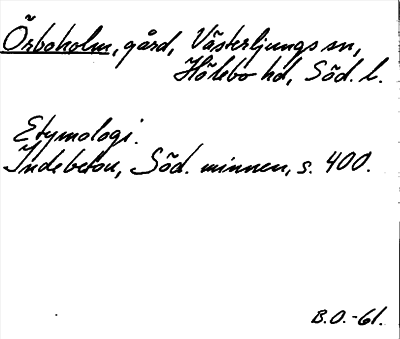 Örboholm, gård, Västerljungs sn,
Hölebo hd, Söd. l.
Etymologi.
Indebetou, Söd. minnen, s. 400.
B.O.-61.